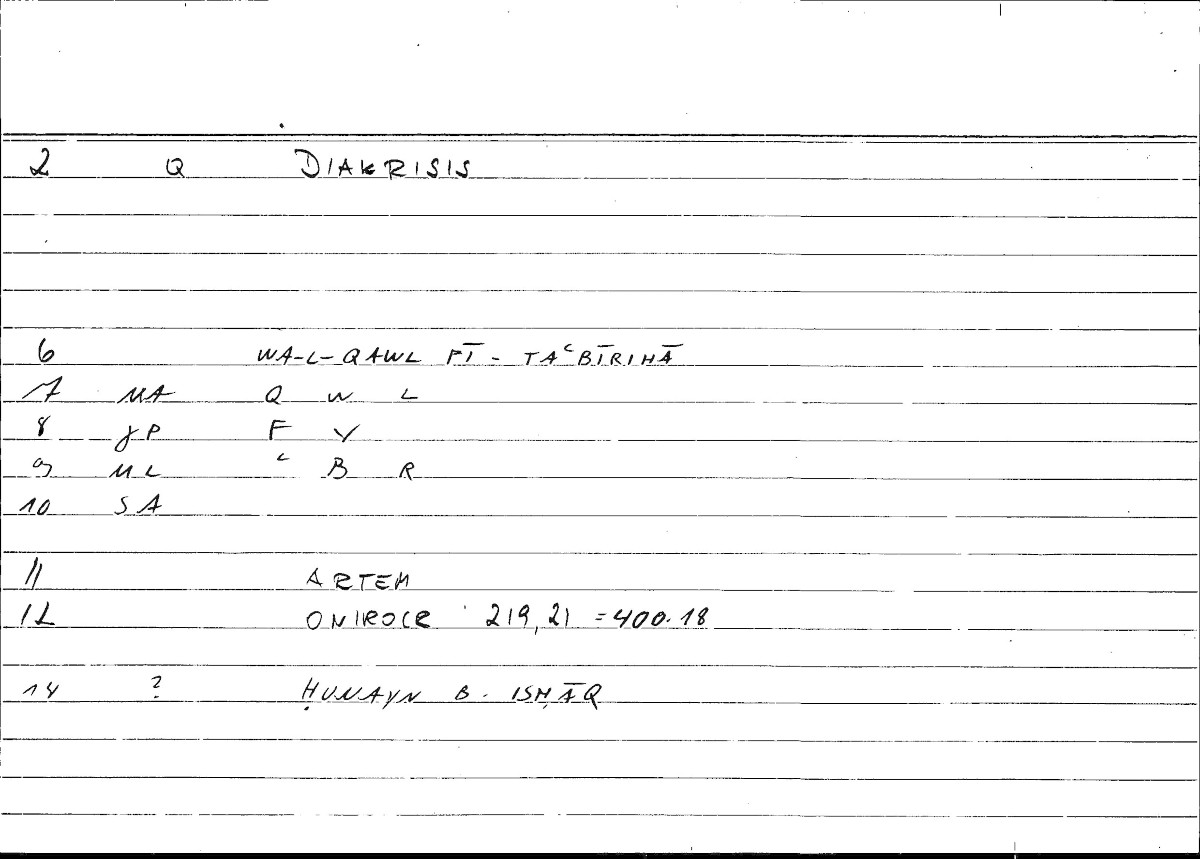 2 Q DIAKRISIS
6 WA-L-QAWL FĪ - TAʿBĪRIHĀ
7 MA Q W L
8 γP F Y
9 ML ʿ B R
10 SA
11 ARTEM
12 ONIROCR 219,21 =400.18
14 ? ḤUNAYN B. ISḤĀQ